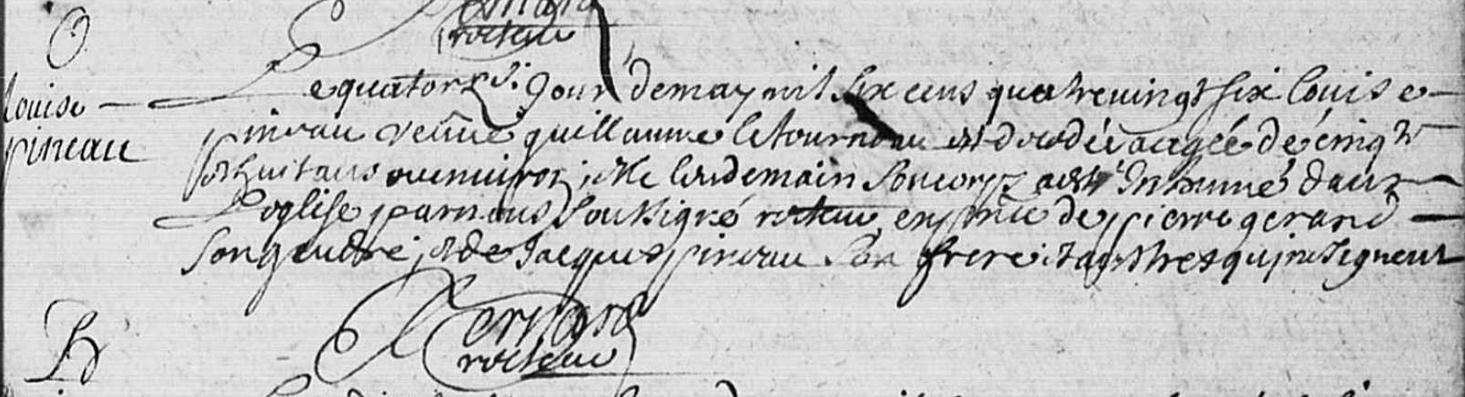 recteur
O
Louise
pineau
Le quatorzie. Jour de may mil six cens quatre vingt six Louise
pineau veuve guillaume letourneau est decedée aagée de cinqte
et huit ans ou environ, et le lendemain son corps a esté Inhumé dans
L'eglise par nous soussigné recteur, en pnce de pierre gerard
son gendre, et de Jacques pineau son frere et austres qui ne signent
recteur
B